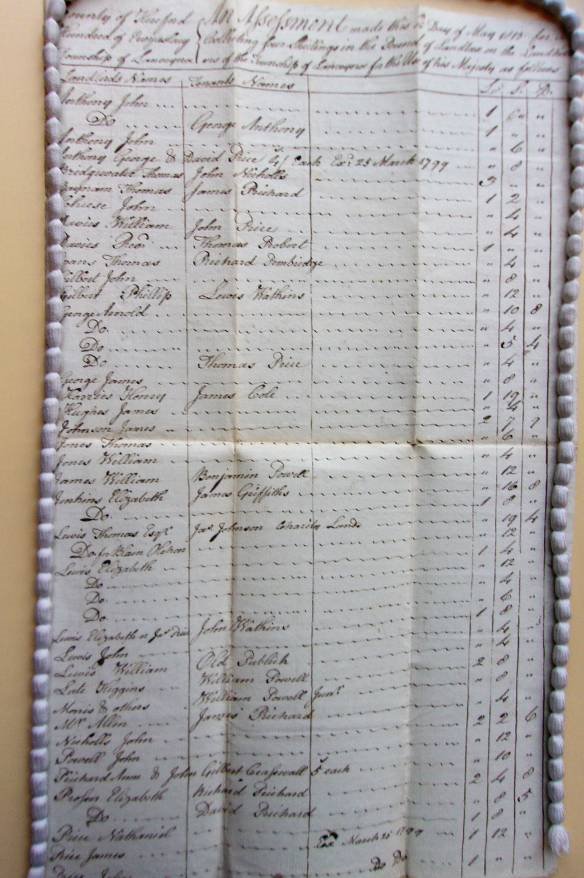 County of Hereford An Assessment made this Day of May for
Hundred of Collecting four Shillings in the Pound of Landlor on the Land
Township of of the Township of for the Use of his Majesty as follows
Landlords Names Tenants Names S. D.
Anthony John 1 6 "
Do George Anthony 1 " "
Anthony John " 6 "
Anthony George & David Price 4/ Each Exd 25 March 1799 " 8 "
Bridgwater Thomas John Nicholls 3 " "
Thomas James Prichard 1 2 "
John " 4 "
Davies William John Price " 4 "
Davies Thomas Robert 1 " "
Evans Thomas Richard Pembridge " 4 "
Gilbert John " 8 "
Gilbert Phillip Lewis Watkins " 12 "
George Arnold " 10 8
Do " 4 "
Do " 5 4
Do Thomas Price " 4 "
George James " 8 "
Harris Henry James Cole 1 19 "
Hughes James " 4 "
Johnson James 2
Jones Thomas " 6 "
Jones William " 4 "
James William Benjamin Powell " 12 "
Jenkins Elizabeth James Griffiths " 16 8
Do 1 8 "
Lewis Thomas Esqr Jas Johnson Charity Lands " 19 4
Do for Blain Olchon " 12 "
Lewis Elizabeth 1 4 "
Do " 12 "
Do " 4 "
Do " 6 "
Lewis Elizabeth John Watkins 1 8 "
Lewis John " 4 "
Lewis William Old Publick " 4 "
Late Higgins William Powell 2 8 "
Morris & others William Powell Junr " 8 "
Mr Allen James Prichard " 4 "
Nicholls John 2 2 6
Powell John " 12 "
Prichard Anne & John Gilbert Craswall 5 each " 10 "
Prosser Elizabeth Richard Prichard 2 4 8
Do David Prichard " 8 5
Price Nathaniel Exd March 25 1799 1 8 "
Price James Do Do 1 12 "
Price John 1 " "